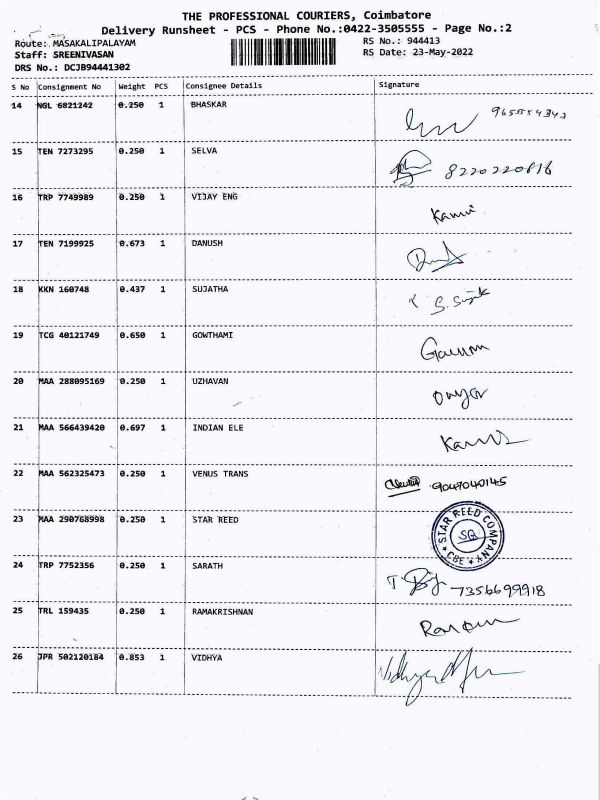 THE PROFESSIONAL COURIERS, Coimbatore
Delivery Runsheet - PCS - Phone No.:0422-3505555 - Page No.:2
Route: MASAKALIPALAYAM
RS No.: 944413
Staff: SREENIVASAN
RS Date: 23-May-2022
DRS No.: DCJB94441302
S No Consignment No Weight PCS Consignee Details Signature
14 NGL 6821242 0.250 1 BHASKAR
15 TEN 7273295 0.250 1 SELVA 8220220816
16 TRP 7749989 0.250 1 VIJAY ENG
17 TEN 7199925 0.673 1 DANUSH
18 KKN 160748 0.437 1 SUJATHA
19 TCG 40121749 0.650 1 GOWTHAMI
20 MAA 288095169 0.250 1 UZHAVAN
21 MAA 566439420 0.697 1 INDIAN ELE
22 MAA 562325473 0.250 1 VENUS TRANS 9047040145
23 MAA 290768998 0.250 1 STAR REED STAR REED COMPANY CBE
24 TRP 7752356 0.250 1 SARATH 7356699918
25 TRL 159435 0.250 1 RAMAKRISHNAN
26 JPR 502120184 0.853 1 VIDHYA Vidhya